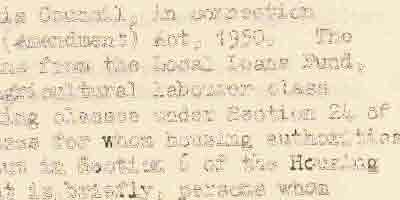 is Council, in connection
(Amendment) Act, 1950. The
ns from the Local Loans Fund,
agricultural labourer class
ing classes under Section 24 of
ses for whom housing authorities
out in Section 6 of the Housing
t is briefly, persons whom